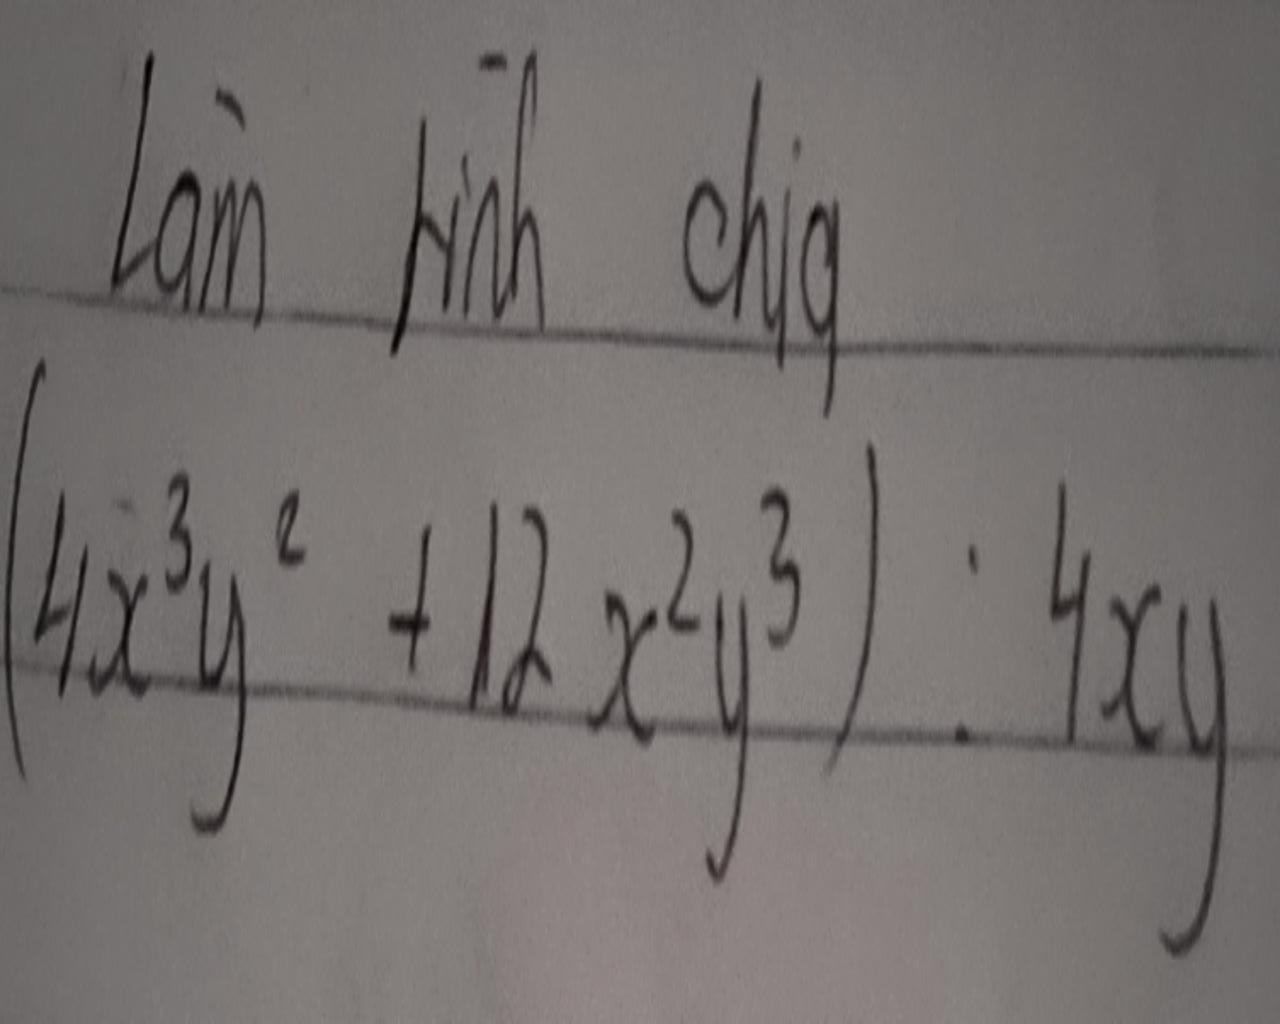 Làm tính chia
(4x³y² + 12x²y³) : 4xy